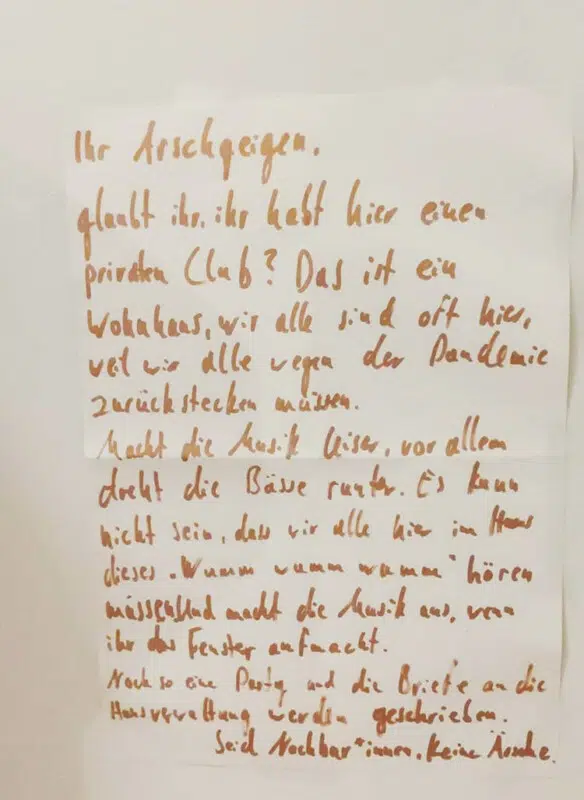 Ihr Arschgeigen,
glaubt ihr, ihr habt hier einen
privaten Club? Das ist ein
Wohnhaus, wir alle sind oft hier,
weil wir alle wegen der Pandemie
zurückstecken müssen.
Macht die Musik leiser, vor allem
dreht die Bässe runter. Es kann
nicht sein, dass wir alle hier im Haus
dieses "Wumm wumm wumm" hören
müssen. Und macht die Musik aus, wenn
ihr das Fenster aufmacht.
Noch so eine Party und die Briefe an die
Hausverwaltung werden geschrieben.
Seid Nachbar*innen, keine Ärsche.